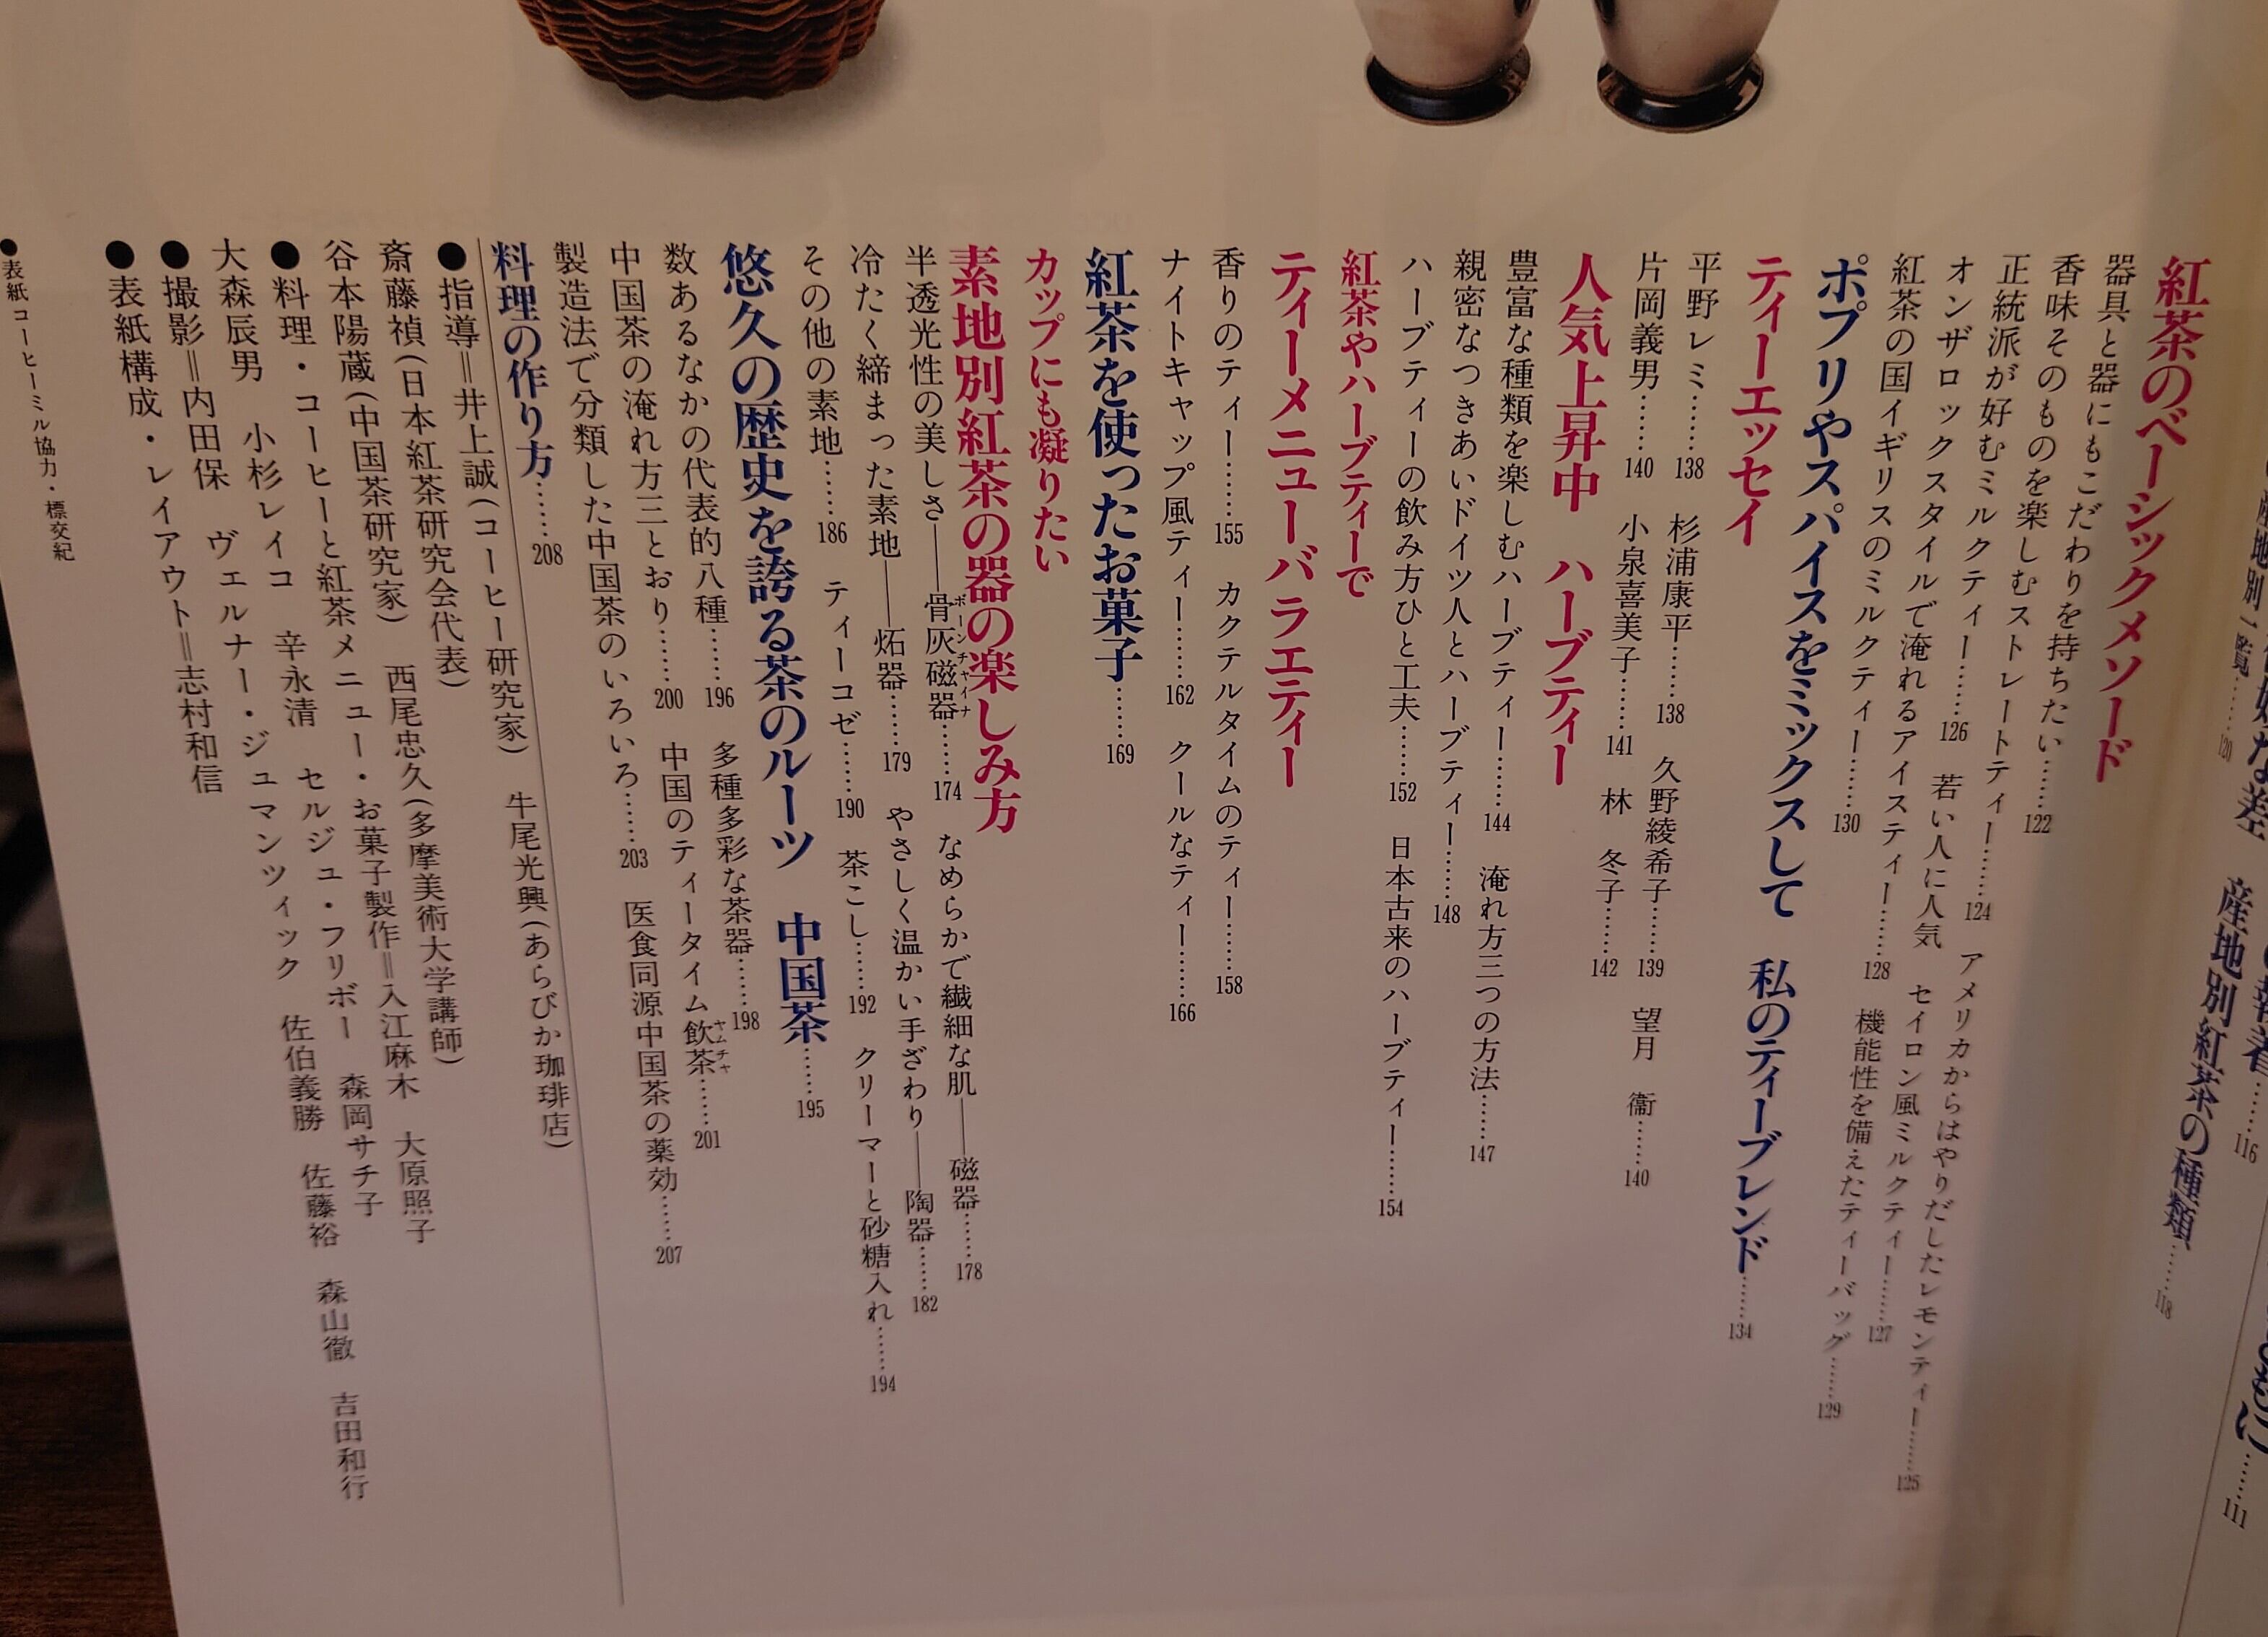 産地別一覧……120
産地別紅茶の種類……118
……116
……111
紅茶のベーシックメソード
器具と器にもこだわりを持ちたい……122
香味そのものを楽しむストレートティー……124　アメリカからはやりだしたレモンティー……125
正統派が好むミルクティー……126　若い人に人気　セイロン風ミルクティー……127
オンザロックスタイルで淹れるアイスティー……128　機能性を備えたティーバッグ……129
紅茶の国イギリスのミルクティー……130
ポプリやスパイスをミックスして　私のティーブレンド……134
ティーエッセイ
平野レミ……138　杉浦康平……138　久野綾希子……139　望月　衞……140
片岡義男……140　小泉喜美子……141　林　冬子……142
人気上昇中　ハーブティー
豊富な種類を楽しむハーブティー……144　淹れ方三つの方法……147
親密なつきあいドイツ人とハーブティー……148
ハーブティーの飲み方ひと工夫……152　日本古来のハーブティー……154
紅茶やハーブティーで
ティーメニューバラエティー
香りのティー……155　カクテルタイムのティー……158
ナイトキャップ風ティー……162　クールなティー……166
紅茶を使ったお菓子……169
カップにも凝りたい
素地別紅茶の器の楽しみ方
半透光性の美しさ――骨灰磁器ボーンチャイナ……174　なめらかで繊細な肌――磁器……178
冷たく締まった素地――炻器……179　やさしく温かい手ざわり――陶器……182
その他の素地……186　ティーコゼ……190　茶こし……192　クリーマーと砂糖入れ……194
悠久の歴史を誇る茶のルーツ　中国茶……195
数あるなかの代表的八種……196　多種多彩な茶器……198
中国茶の淹れ方三とおり……200　中国のティータイム飲茶ヤムチャ……201
製造法で分類した中国茶のいろいろ……203　医食同源中国茶の薬効……207
料理の作り方……208
●指導＝井上誠(コーヒー研究家)　牛尾光興(あらびか珈琲店)
斎藤禎(日本紅茶研究会代表)　西尾忠久(多摩美術大学講師)
谷本陽蔵(中国茶研究家)
●料理・コーヒーと紅茶メニュー・お菓子製作＝入江麻木　大原照子
大森辰男　小杉レイコ　辛永清　セルジュ・フリボー　森岡サチ子
ヴェルナー・ジュマンツィック
●撮影＝内田保　佐伯義勝　佐藤裕　森山徹　吉田和行
●表紙構成・レイアウト＝志村和信
●表紙コーヒーミル協力・標交紀